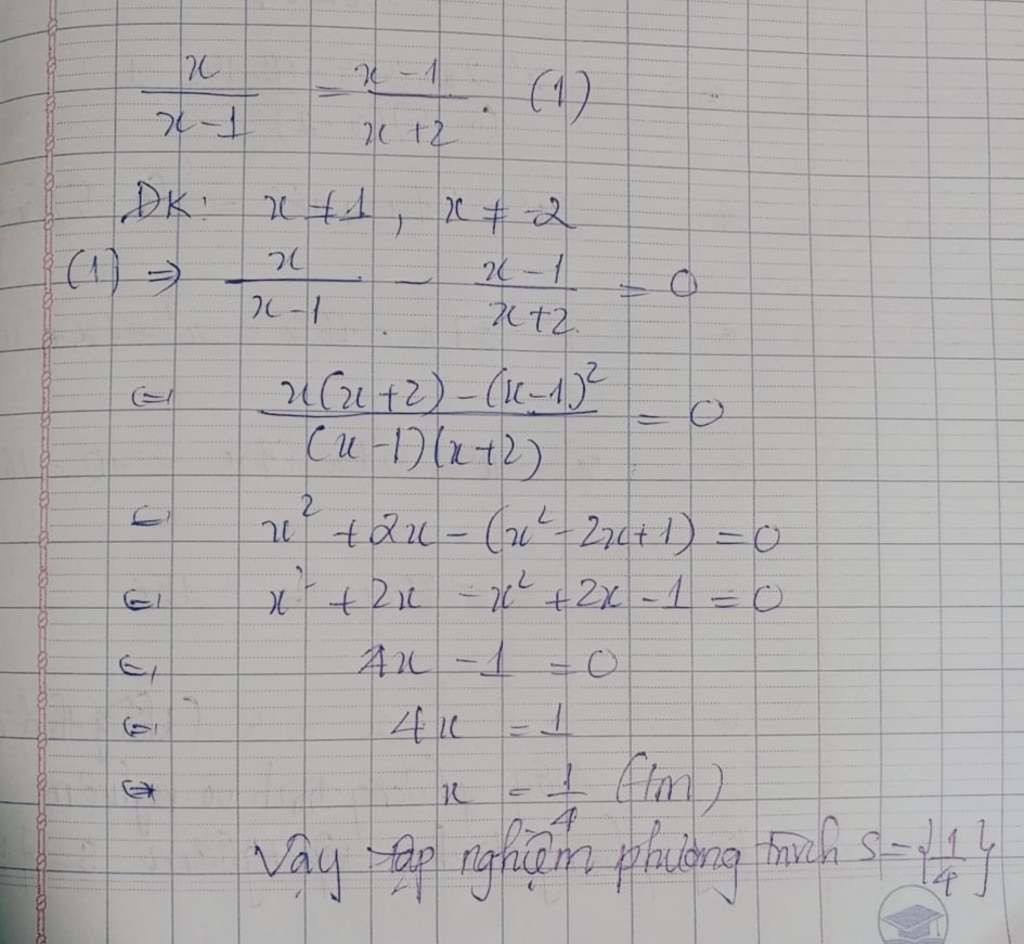 x/(x-1) = (x-1)/(x+2). (1)
ĐK: x ≠ 1, x ≠ -2
(1) ⇒ x/(x-1) - (x-1)/(x+2) = 0
⇔ (x(x+2) - (x-1)²)/((x-1)(x+2)) = 0
⇔ x² + 2x - (x² - 2x + 1) = 0
⇔ x² + 2x - x² + 2x - 1 = 0
⇔ 4x - 1 = 0
⇔ 4x = 1
⇔ x = 1/4 (tm)
Vậy tập nghiệm phương trình S = {1/4}